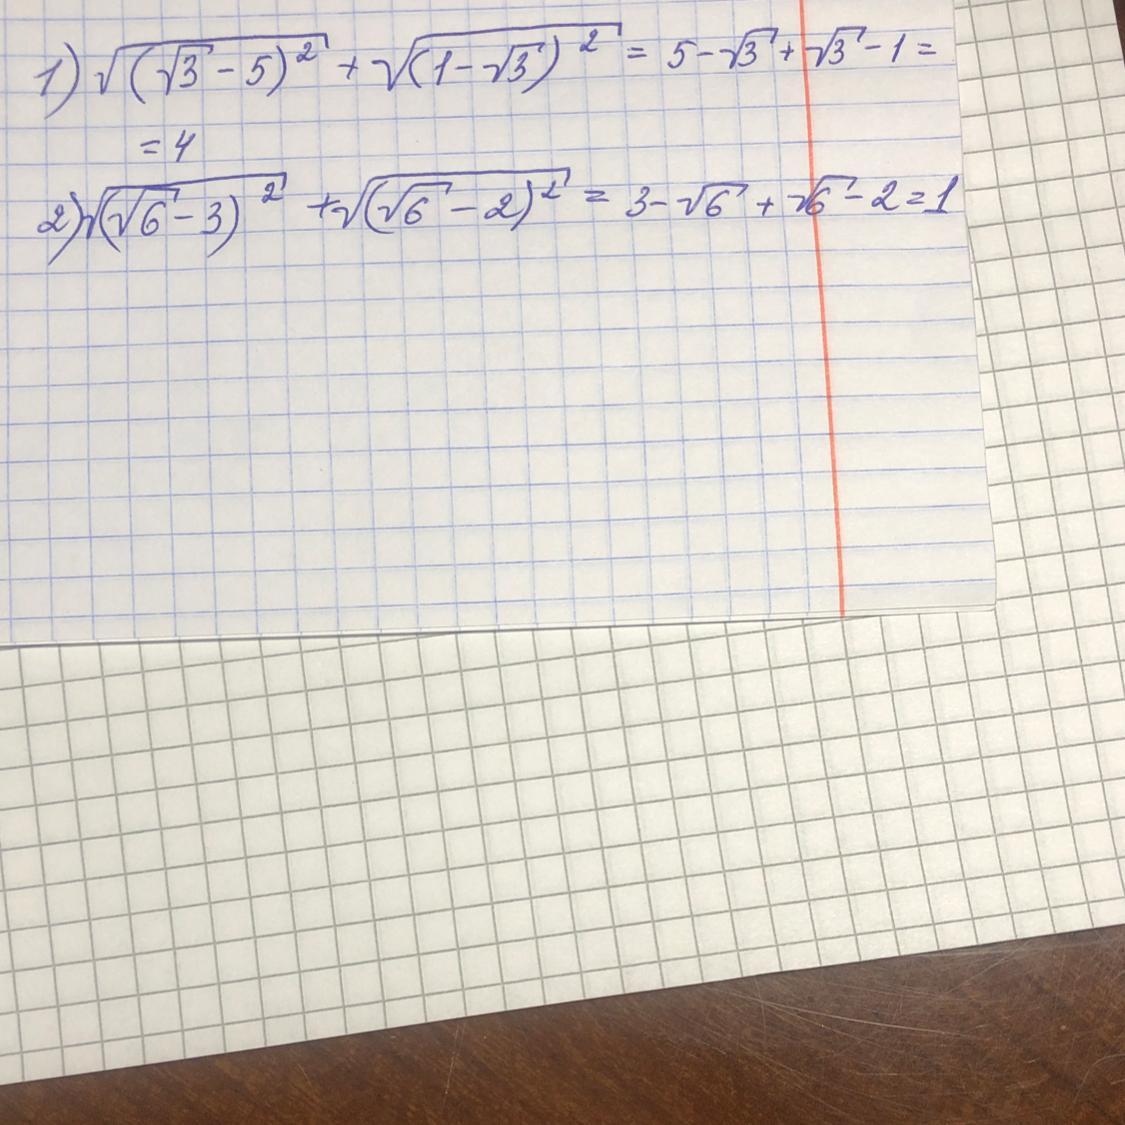 1) √(√3 - 5)² + √(1 - √3)² = 5 - √3 + √3 - 1 =
= 4
2) √(√6 - 3)² + √(√6 - 2)² = 3 - √6 + √6 - 2 = 1